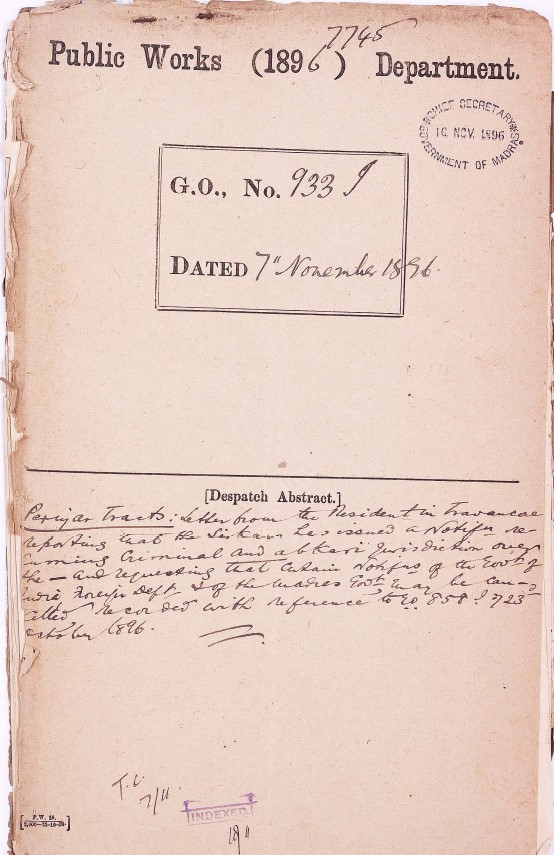 7745
Public Works (1896) Department.
CHIEF SECRETARY
10 NOV. 1896
GOVERNMENT OF MADRAS
G.O., No. 933 I
DATED 7" November 1896.
[Despatch Abstract.]
Periyar Tracts: Letter from the Resident in Travancore
reporting that the Sirkar has issued a Notifn re-
suming Criminal and abkari jurisdiction over
the — and requesting that certain Notifns of the Govt of
India Foreign Dept & of the Madras Govt may be can-
celled recorded with reference to G.O. 858 I 23
October 1896.
7/11
INDEXED
P.W. 19.